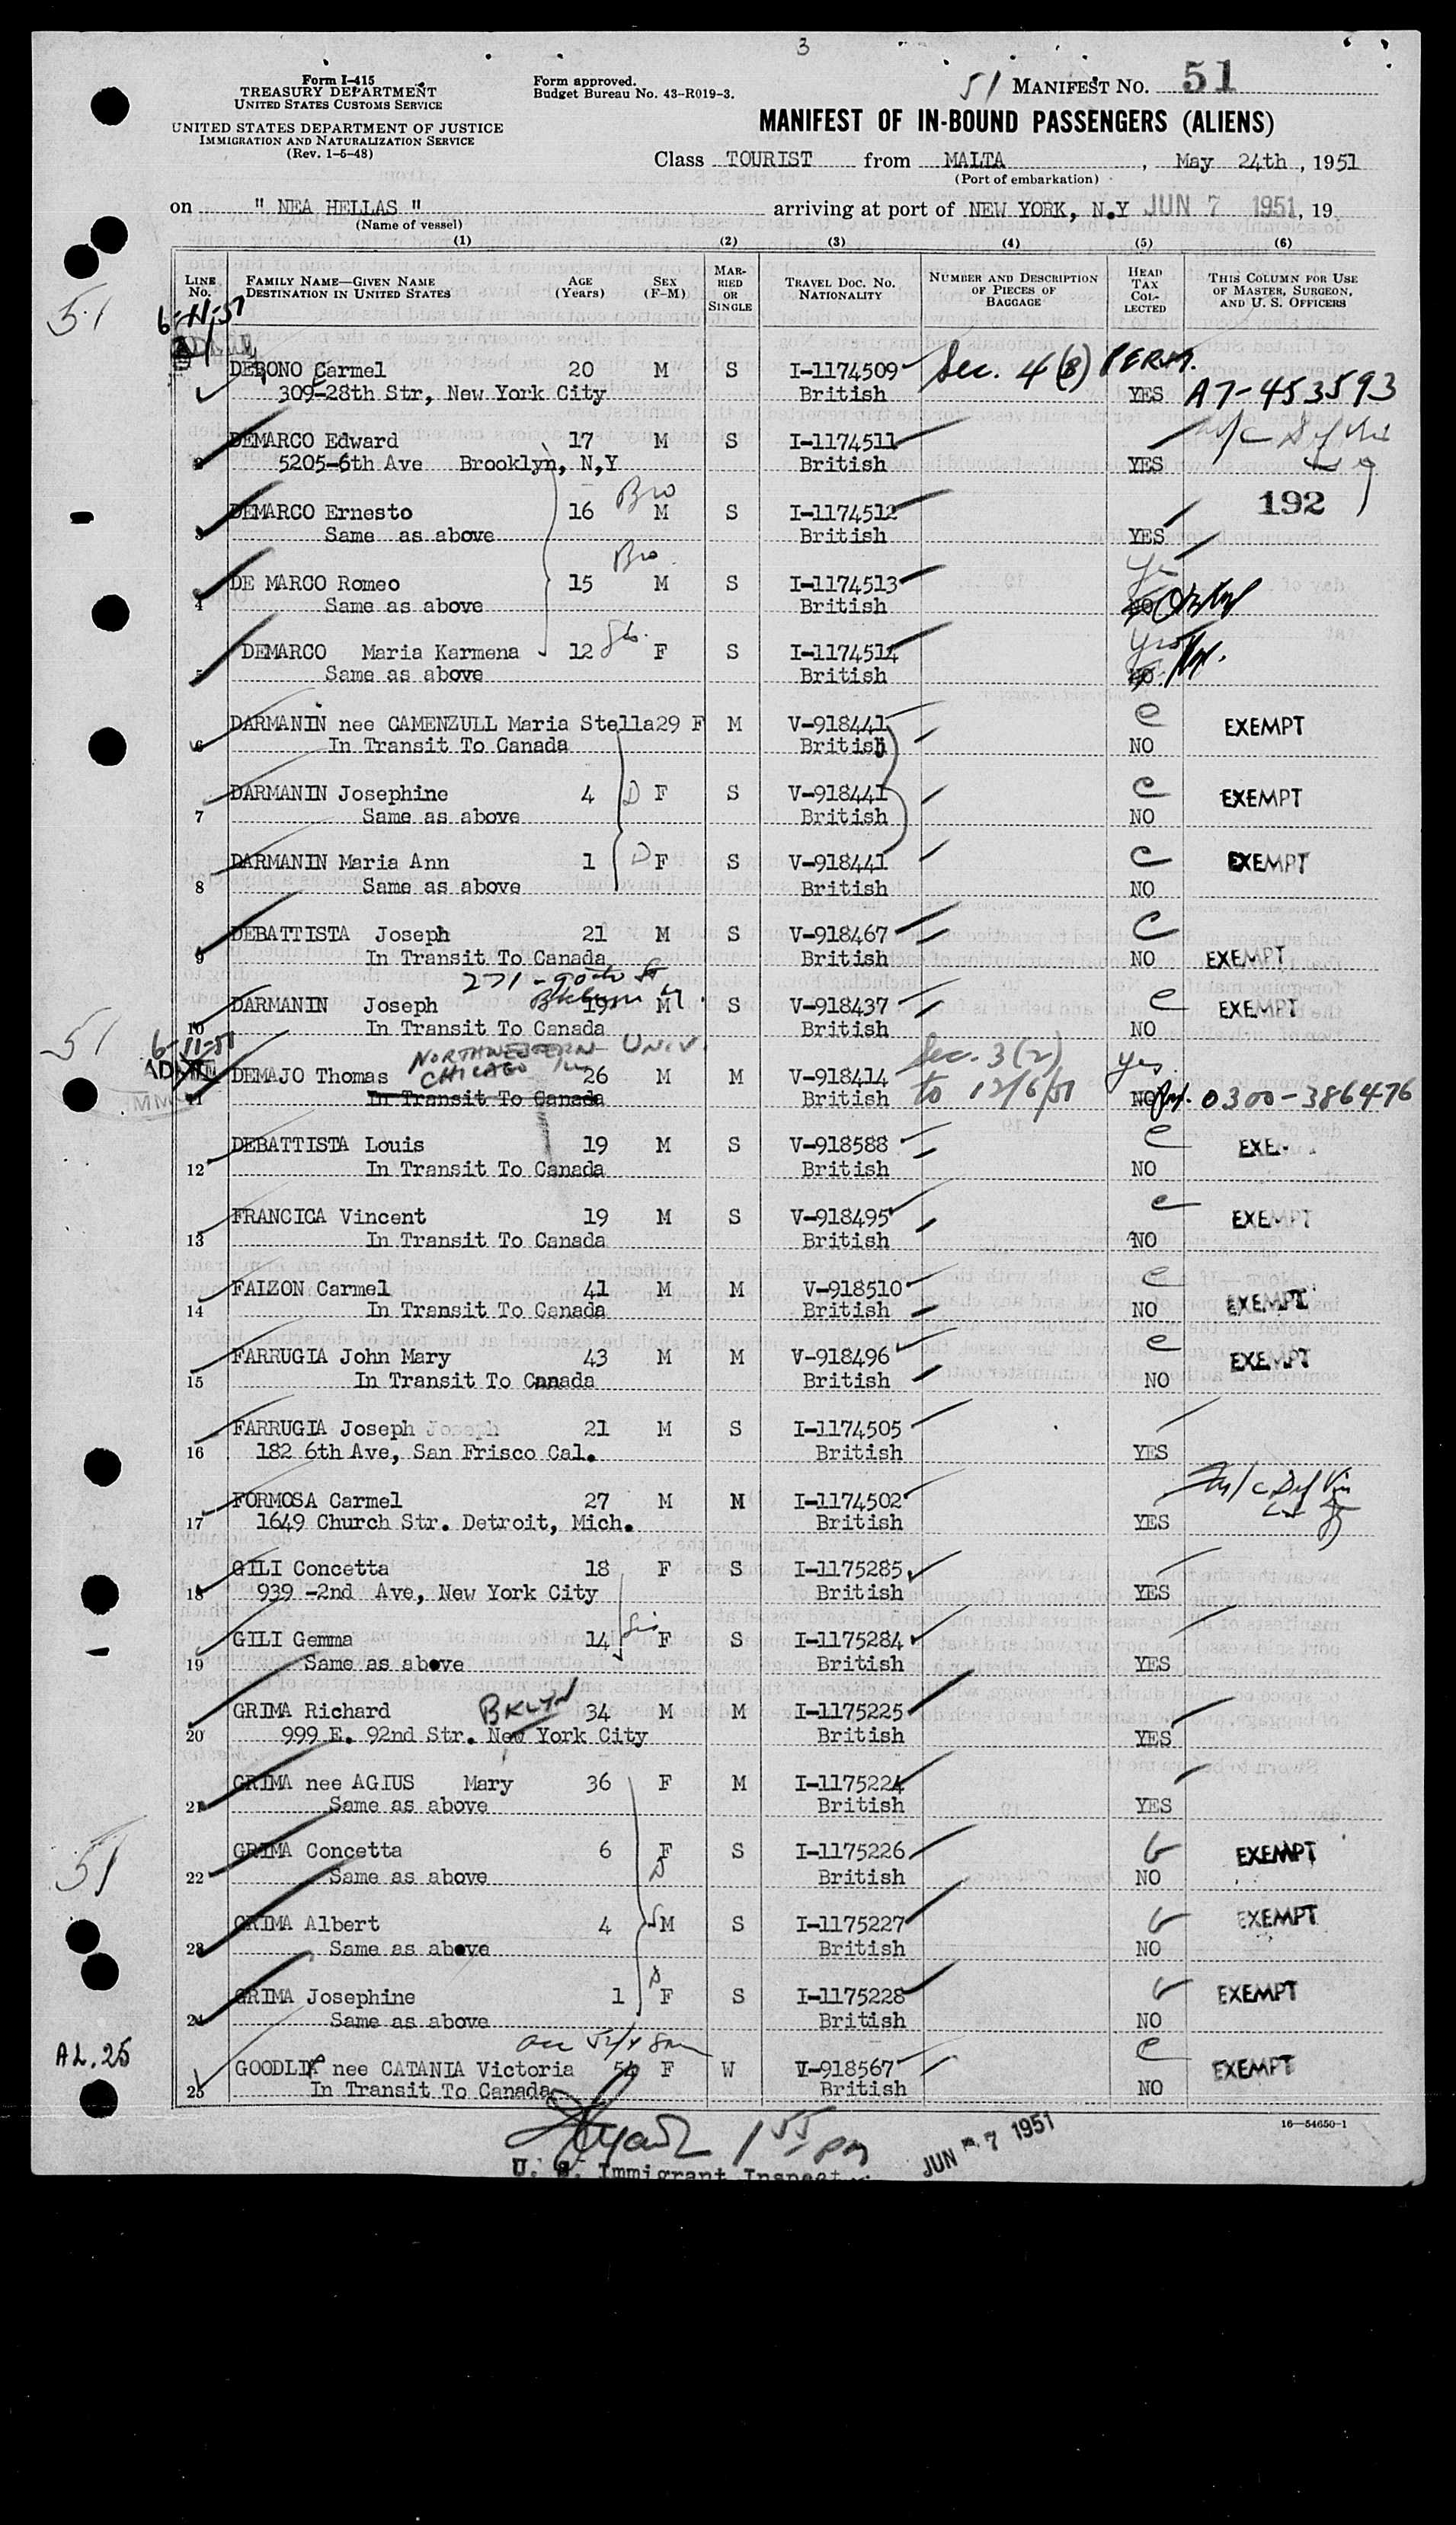 3
Form I-415
TREASURY DEPARTMENT
UNITED STATES CUSTOMS SERVICE
UNITED STATES DEPARTMENT OF JUSTICE
IMMIGRATION AND NATURALIZATION SERVICE
(Rev. 1-5-48)
Form approved.
Budget Bureau No. 43-R019-3.
51 MANIFEST NO. 51
MANIFEST OF IN-BOUND PASSENGERS (ALIENS)
Class TOURIST from MALTA, May 24th, 1951
(Port of embarkation)
on " NEA HELLAS " arriving at port of NEW YORK, N.Y JUN 7 1951, 19
(Name of vessel)
(1) (2) (3) (4) (5) (6)
LINE NO. FAMILY NAME—GIVEN NAME DESTINATION IN UNITED STATES AGE (Years) SEX (F-M) MARRIED OR SINGLE TRAVEL DOC. NO. NATIONALITY NUMBER AND DESCRIPTION OF PIECES OF BAGGAGE HEAD TAX COLLECTED THIS COLUMN FOR USE OF MASTER, SURGEON, AND U. S. OFFICERS
51 6-11-51
DEBONO Carmel 20 M S I-1174509 Sec. 4(B) PERM.
309-28th Str, New York City British YES A7-453593
DEMARCO Edward 17 M S I-1174511
2 5205-6th Ave Brooklyn, N,Y British YES
DEMARCO Ernesto 16 Bro M S I-1174512 192
3 Same as above British YES
DE MARCO Romeo 15 Bro. M S I-1174513
4 Same as above British NO
DEMARCO Maria Karmena 12 F S I-1174514 yes
5 Same as above British NO
DARMANIN nee CAMENZULL Maria Stella 29 F M V-918441 e EXEMPT
6 In Transit To Canada British NO
DARMANIN Josephine 4 D F S V-918441 e EXEMPT
7 Same as above British NO
DARMANIN Maria Ann 1 D F S V-918441 e EXEMPT
8 Same as above British NO
DEBATTISTA Joseph 21 M S V-918467 e
9 In Transit To Canada British NO EXEMPT
271-90th St
DARMANIN Joseph 19 M S V-918437 e EXEMPT
10 In Transit To Canada British NO
51 6-11-51 NORTHWESTERN UNIV. Sec. 3(2) yes
DEMAJO Thomas CHICAGO Ill 26 M M V-918414 to 12/6/51
11 In Transit To Canada British NO 0300-386476
DEBATTISTA Louis 19 M S V-918588 e EXEM
12 In Transit To Canada British NO
FRANCICA Vincent 19 M S V-918495 e EXEMPT
13 In Transit To Canada British NO
FAIZON Carmel 41 M M V-918510 e EXEMPT
14 In Transit To Canada British NO
FARRUGIA John Mary 43 M M V-918496 e EXEMPT
15 In Transit To Canada British NO
FARRUGIA Joseph Joseph 21 M S I-1174505
16 182 6th Ave, San Frisco Cal. British YES
FORMOSA Carmel 27 M M I-1174502
17 1649 Church Str. Detroit, Mich. British YES
GILI Concetta 18 F S I-1175285
18 939 -2nd Ave, New York City British YES
GILI Gemma 14 Sis F S I-1175284
19 Same as above British YES
GRIMA Richard BKLYN 34 M M I-1175225
20 999 E. 92nd Str. New York City British YES
GRIMA nee AGIUS Mary 36 F M I-1175224
21 Same as above British YES
GRIMA Concetta 6 F S I-1175226 EXEMPT
22 Same as above British NO
51
GRIMA Albert 4 S M S I-1175227 EXEMPT
23 Same as above British NO
GRIMA Josephine 1 F S I-1175228 EXEMPT
24 Same as above British NO
AL.25
GOODLIP nee CATANIA Victoria F W V-918567 e EXEMPT
25 In Transit To Canada British NO
16—54650-1
1 55 pm JUN 7 1951
U. S. Immigrant Inspector